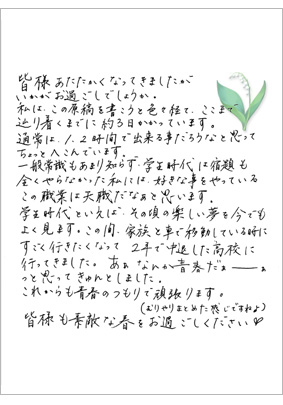 皆様あたたかくなってきましたが
いかがお過ごしでしょうか。
私は、この原稿を書こうと色々経て、ここまで
辿り着くまでに約3日かかっています。
通常は1、2時間で出来る事だろうなと思って
ちょっとへこんでいます。
一般常識もあまり知らず、学生時代は宿題も
全くやらなかった私には、好きな事をやっている
この職業は天職だなあと思います。
学生時代といえば、その頃の楽しい夢を今でも
よく見ます。この間、家族と車で移動している時に
すごく行きたくなって2年で中退した高校に
行ってきました。あぁなんか青春だぁーーぁ
っと思ってきゅんとしました。
これからも青春のつもりで頑張ります。
(むりやりまとめた感じですねょ)
皆様も素敵な春をお過ごしください♡